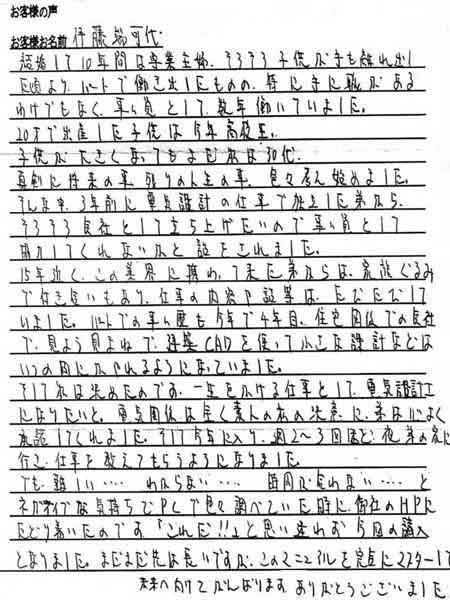 お客様の声
お客様お名前 伊藤 可代
結婚して10年間は専業主婦、そろそろ子供が手も離れ出し
た頃より、パートで働き出したものの、特に手に職がある
わけでもなく、事務員として、数年働いていました。
20才で出産した子供は今年高校生。
子供が大きくなってもまだ私は30代。
真剣に将来の事、残りの人生の事、色々考え始めました。
そんな中、3年前に電気設計の仕事で独立した弟から、
そろそろ会社として立ち上げたいので事務員として
協力してくれないかと話をされました。
15年近く、この業界に携わって来た弟からは、家族ぐるみ
で付き合いもあり、仕事の内容や話等は、たびたびして
いました。パートでの事務歴も今年で4年目、住宅関係での会社
で、見よう見まねで、建築CADを使って小さな設計などは
いつの間にかやれるようになっていました。
そして私は決めたのです。一生を かける仕事として、電気設計士
になりたいと。電気関係は全く素人の私の決意に、弟は心よく
承諾してくれました。そして今年に入り、週2～3回ほど、夜弟の家に
行き、仕事を教えてもらうようになりました。
でも、難しい…‥ わからない…‥ 時間が足りない…‥ と
ネガティブな気持ちでPCで色々調べていた時に、御社のHPに
たどり着いたのです。「これだ!!」と思い迷わず今回の購入
となりました。まだまだ先は長いですが、このマニュアルを完点にマスターして
未来へ向けてがんばります。ありがとうございました